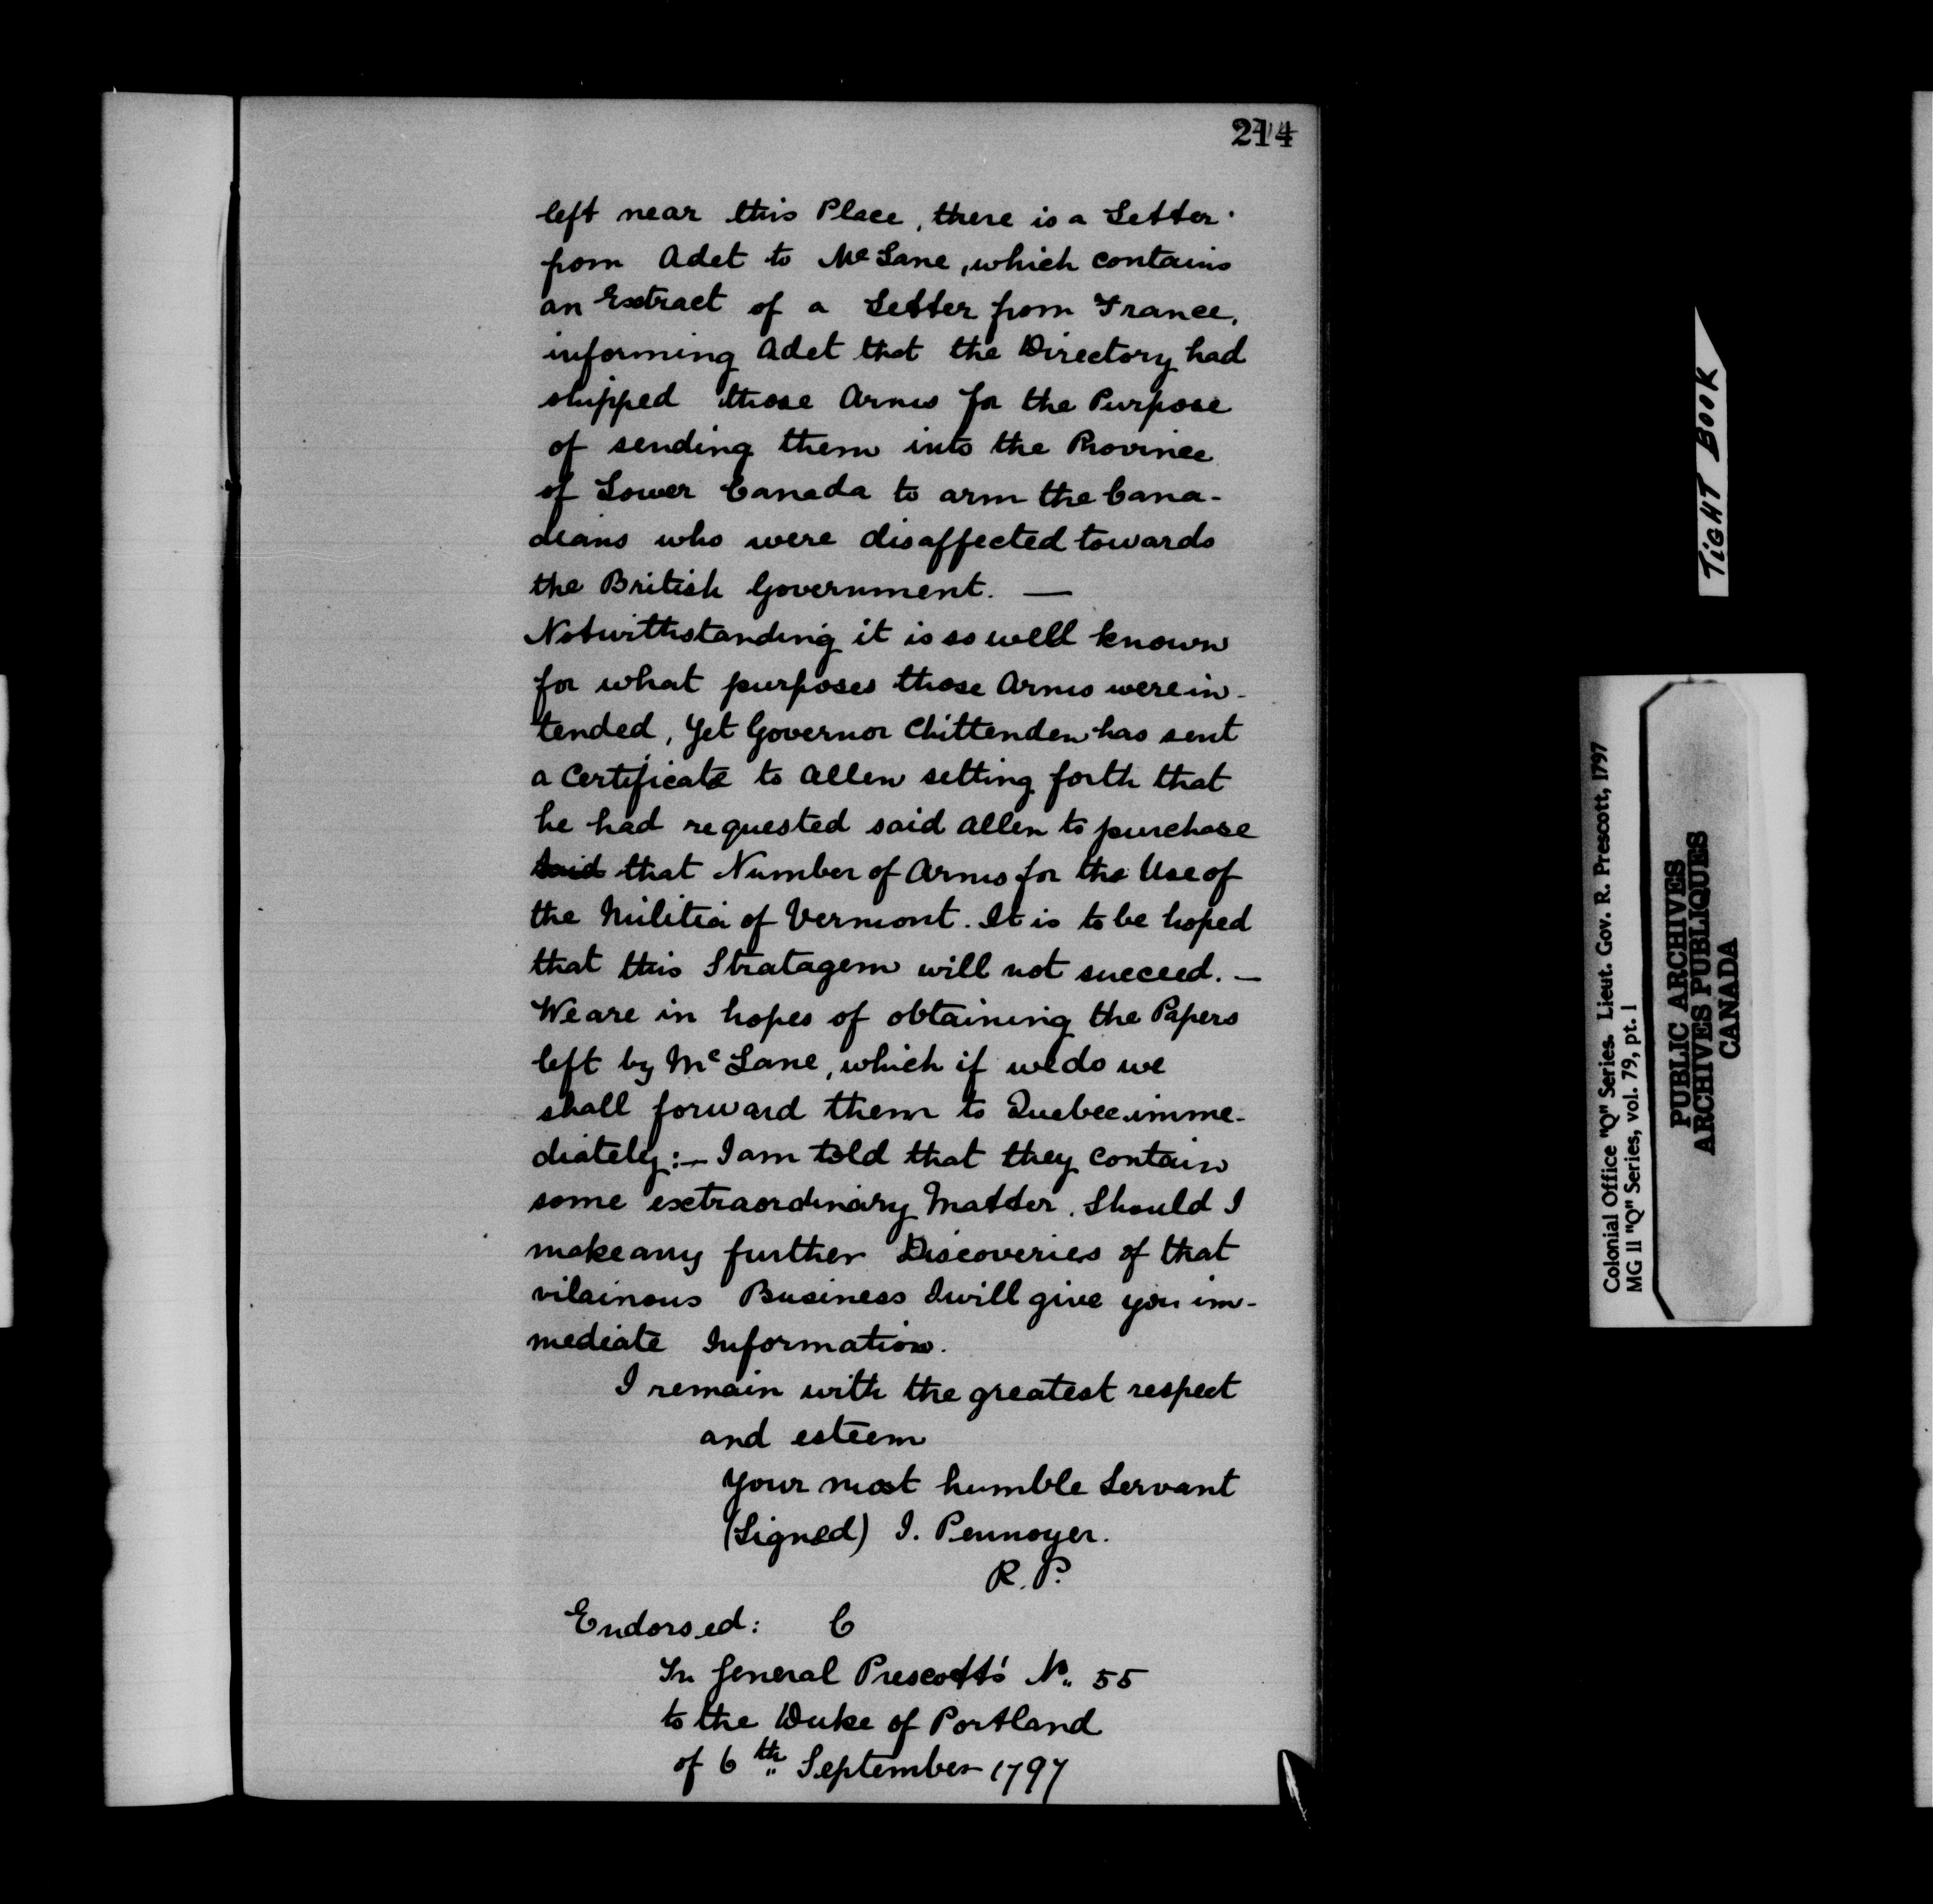 214
left near this Place, there is a Letter
from Adet to Mc Lane, which contains
an Extract of a Letter from France,
informing Adet that the Directory had
shipped those Arms for the Purpose
of sending them into the Province
of Lower Canada to arm the Cana-
dians who were disaffected towards
the British Government. —
Notwithstanding it is so well known
for what purposes those Arms were in-
tended, Yet Governor Chittenden has sent
a Certificate to Allen setting forth that
he had requested said Allen to purchase
said that Number of Arms for the Use of
the Militia of Vermont. It is to be hoped
that this Stratagem will not succeed. —
We are in hopes of obtaining the Papers
left by Mc Lane, which if we do we
shall forward them to Quebec imme-
diately:— I am told that they contain
some extraordinary Matter. Should I
make any further Discoveries of that
vilainous Business I will give you im-
mediate Information.
I remain with the greatest respect
and esteem
Your most humble Servant
(Signed) J. Pennoyer.
R. P.
Endorsed: C
In General Prescott's No. 55
to the Duke of Portland
of 6th September 1797
TIGHT BOOK
Colonial Office "Q" Series. Lieut. Gov. R. Prescott, 1797
MG 11 "Q" Series, vol. 79, pt. 1
PUBLIC ARCHIVES
ARCHIVES PUBLIQUES
CANADA